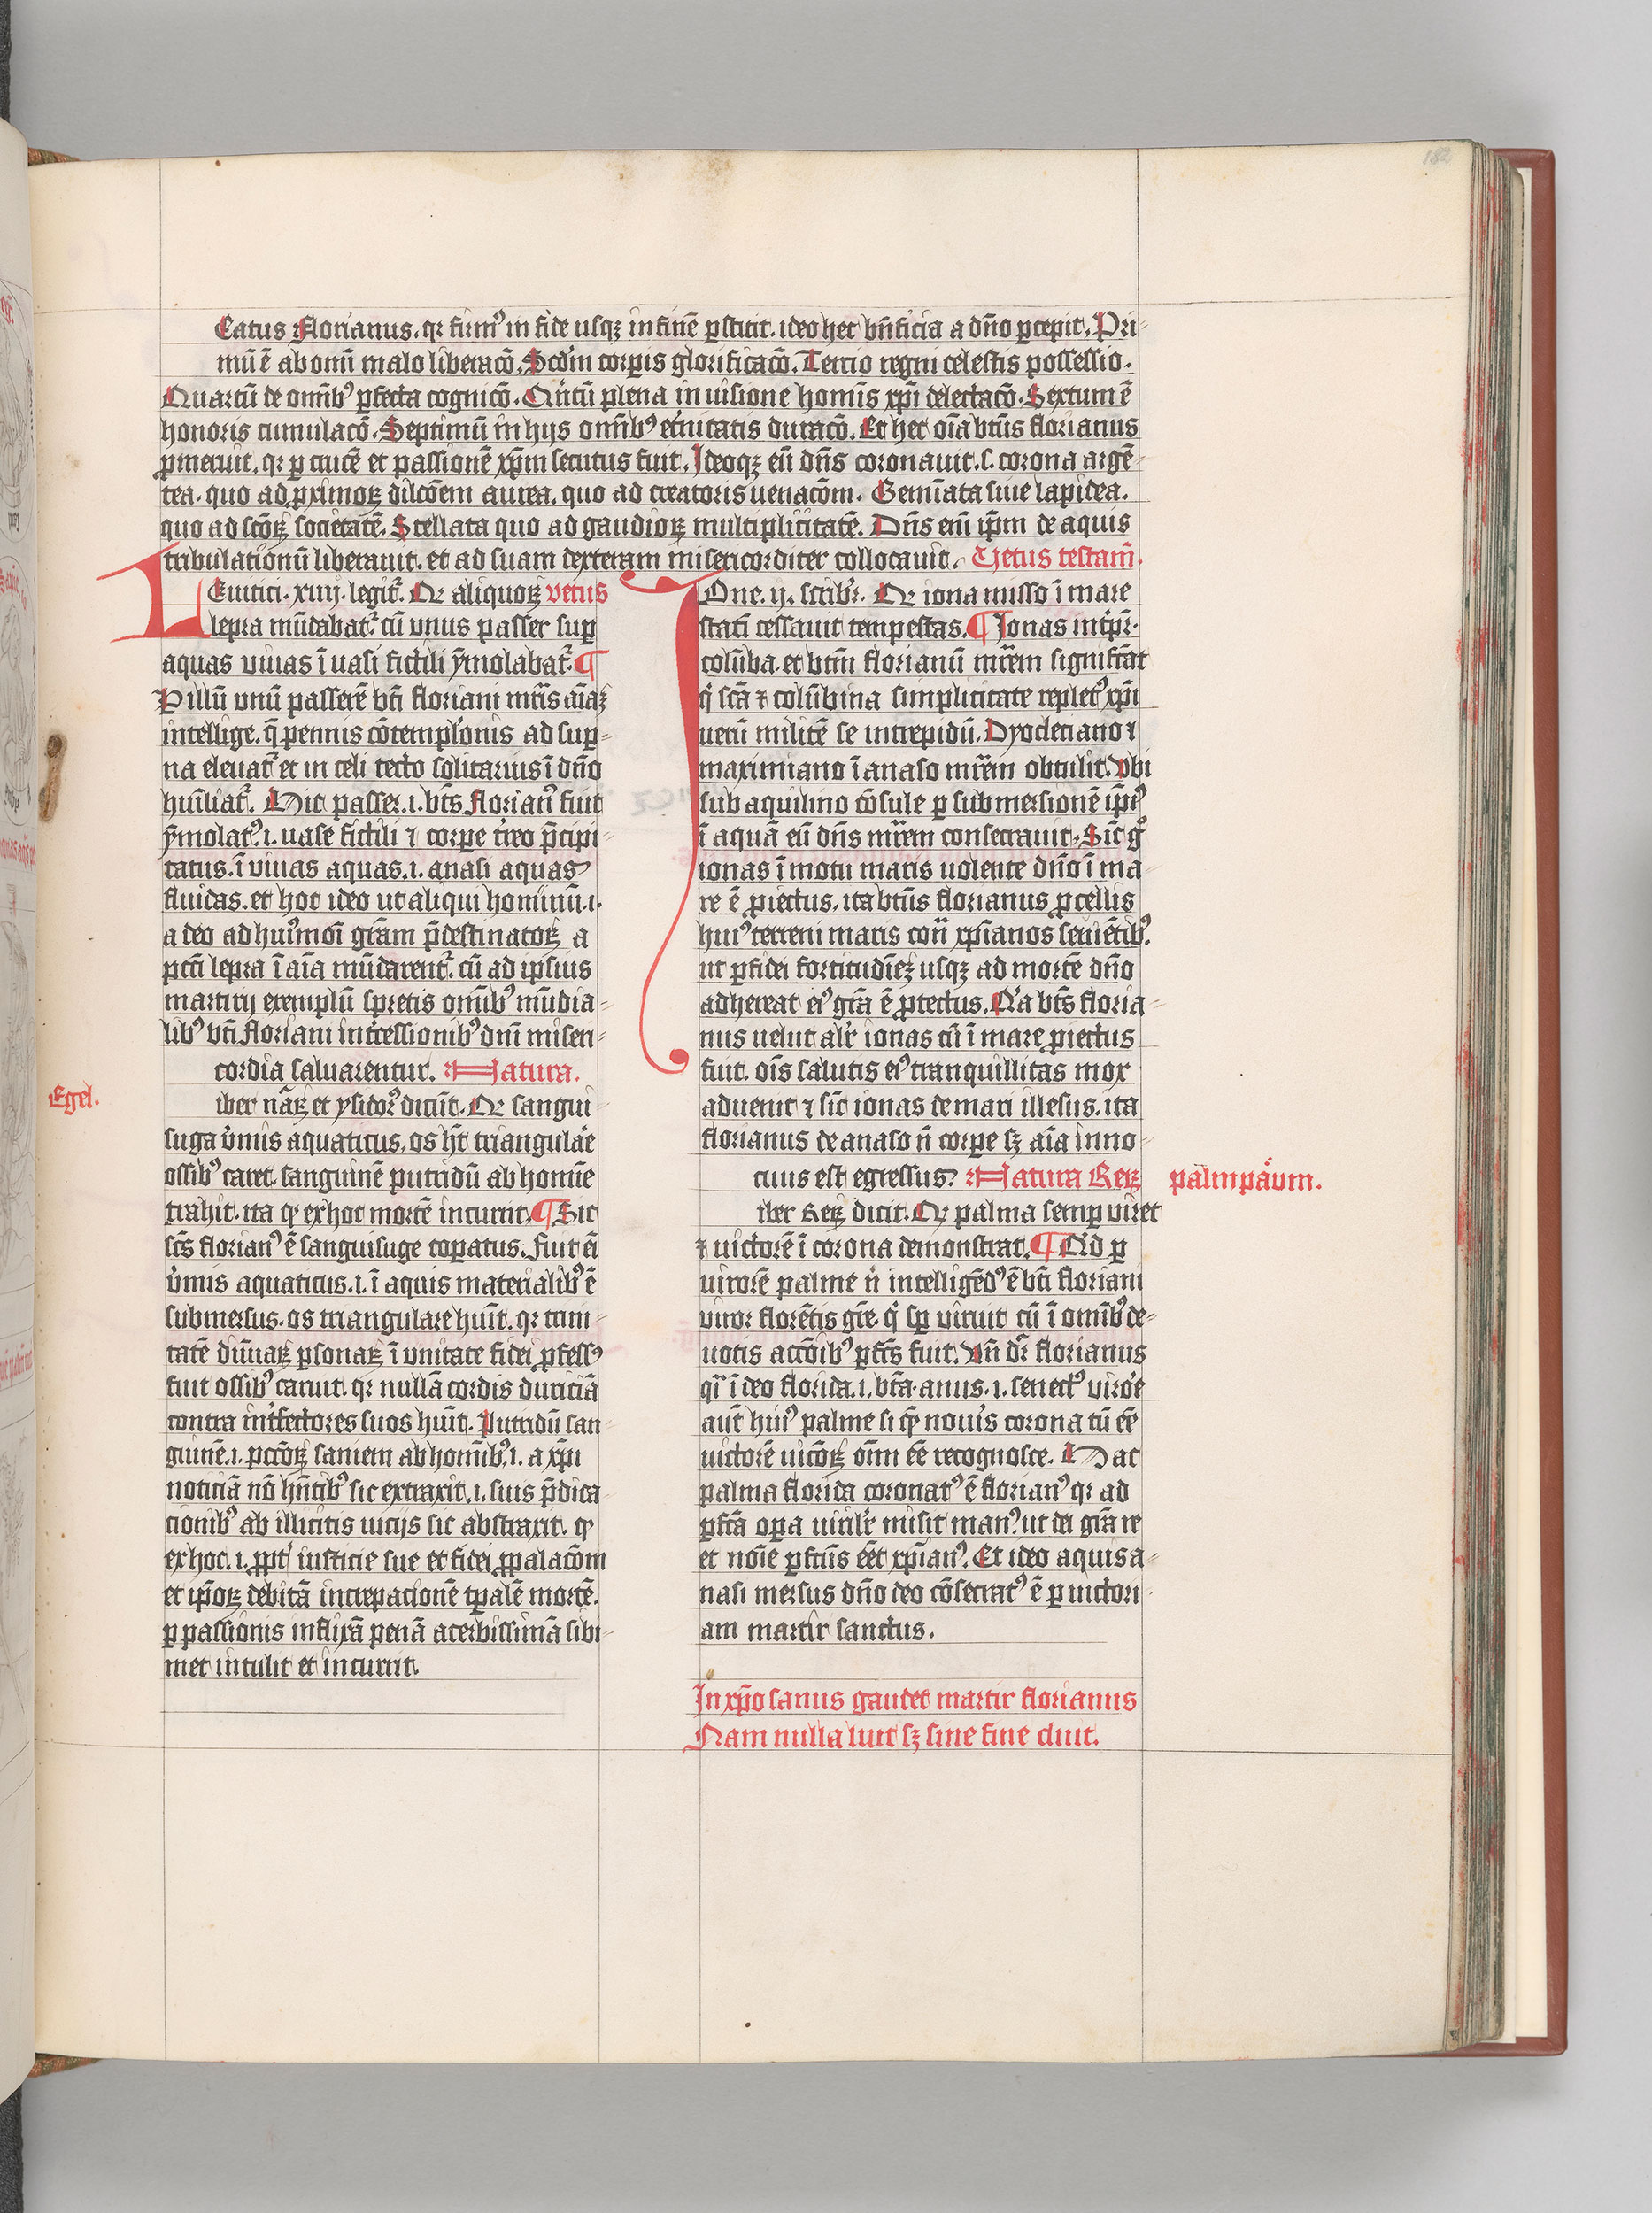 182
Eatus Florianus. qr firmꝰ in fide usqꝫ in finē ꝑstitit. ideo hec bn̄ficia a dn̄o ꝑcepit. Pri-
mū ē ab omī malo liberacō. Scd̄m corꝑis glorificacō. Tercio regni celestis possessio.
Quartū de omībꝰ ꝑfecta cognicō. Qͥntū plena in uisione homīs xp̄i delectacō. Sextum ē
honoris cumulacō. Septimū in hijs omībꝰ et̓nitatis duracō. Et hec oīa bt̄us florianus
ꝓmeruit. qr ꝑ crucē et passionē xp̄m secutus fuit. Ideoqꝫ eū dn̄s coronauit. s. corona argē-
tea. quo ad ꝓximoꝝ dilcōem aurea. quo ad creatoris uenacōm. Gemīata siue lapidea.
quo ad sc̄oꝝ societatē. Stellata quo ad gaudioꝝ multiplicitatē. Dn̄s enī ip̄m de aquis
tribulationū liberauit. et ad suam dexteram misericorditer collocauit. Uetus testam̄.
LEuitici. xiiij. legitᷣ. Qꝛ aliquoꝝ vetus
lepra mūdabatᷣ. cū vnus passer suꝑ
aquas viuas ī uasi fictili ȳmolabatᷣ. ¶
Pillū vnū passerē bt̄i floriani mr̄is aīaꝫ
intellige. q̄ pennis cōtemplōnis ad suꝑ-
na eleuatᷣ et in celi tecto solitarius ī dn̄o
huīliatᷣ. Hic passer. i. bt̄s florianꝰ fuit
ȳmolatꝰ. i. uase fictili ⁊ corꝑe tͥreo p̄cipi-
tatus. ī viuas aquas. i. anasi aquas
fluidas. et hoc ideo ut aliqui hominū. i.
a deo ad huiꝰmōi gr̄am p̄destinatoꝝ a
pctī lepra ī aīa mūdarentᷣ. cū ad ipsius
martirij exemplū spretis omībꝰ mūdia-
libꝰ bt̄i floriani intͨessionibꝰ dn̄i miseri-
cordia saluarentur. Natura.
Egel.
iber nāꝝ et ysidorꝰ dicūt. Qꝛ sangui-
suga v̓mis aquaticus. os hꝫ triangulāe
ossibꝰ caret. sanguinē putridū ab homīe
trahit. ita qꝫ ex hoc mortē incurrit. ¶ Sic
sc̄s florianꝰ ē sanguisuge coꝑatus. Fuit eī
v̓mis aquaticus. i. ī aquis materialibꝰ ē
submersus. os triangulare huīt. qr trini-
tatē diuinaꝝ ꝑsonaꝝ ī vnitate fidei ꝓfessꝰ
fuit ossibꝰ caruit. qr nullā cordis duriciā
contra int̓fectores suos huīt. Putridū san-
guinē. i. pccōꝝ saniem ab homībꝰ. i. a xp̄i
noticiā nō hn̄tibꝰ sic extraxit. i. suis p̄dica
cionibꝰ ab illicitis uicijs sic abstraxit. qꝫ
ex hoc. i. ꝓpt̓ iusticie sue et fidei ꝓpalacōm
et ip̄oꝝ debitā increpacionē tꝑalē mortē.
ꝑ passionis inflixā penā acerbissimā sibi-
met intulit et incurrit.
IOne. ij. scribᷣ. Qꝛ iona misso ī mare
statī cessauit tempestas. ¶ Jonas int̓pᷣ.
colūba. et bt̄m florianū mr̄em significat
qͥ scā ⁊ colūbina simplicitate repletꝰ xp̄i
uerū militē se intrepidū. Dyocleciano ⁊
maximiano ī anaso mr̄em obtulit. Vbi
sub aquilino cōsule ꝑ submersionē ip̄iꝰ
ī aquā eū dn̄s mr̄em consecrauit. Sic gͦ
ionas ī motu maris uolente dn̄o ī ma-
re ē ꝓiectus. ita bt̄us florianus ꝓcellis
huiꝰ terreni maris con̄ xp̄ianos seuiētibꝰ.
ut ꝑ fidei fortitudīeꝫ usqꝫ ad mortē dn̄o
adhereat eiꝰ gr̄a ē ꝓtectus. Nͣ bt̄s floria-
nus uelut alr̄ ionas cū ī mare ꝓiectus
fuit. oīs salutis eiꝰ tranquillitas mox
aduenit ⁊ sic ionas de mari illesus. ita
florianus de anaso n̄ corꝑe sꝫ aīa inno-
cuus est egressus. Natura Reꝝ palmpawm.
iber Reꝝ dicit. Qꝛ palma semꝑ viret
⁊ uictorē ī corona demonstrat. ¶ Qͥd ꝑ
uirorē palme n̓ intelligēdꝰ ē bt̄i floriani
viror florētis gr̄e. qͥ sꝑ viruit cū ī omībꝰ de-
uotis accōibꝰ ꝑfc̄s fuit. Vn̄ dr̄ florianus
qͣi ī deo florida. i. bt̄a. anus. i. senectꝰ virōe
aut̄ huiꝰ palme si qꝫ nouis corona tū eē
uictorē uicōꝝ oīm eē recognosce. Hac
palma florida coronatꝰ ē florianꝰ qr ad
ꝑfcā opa uirilr̄ misit manꝰ. ut dei gr̄a re
et noīe ꝑfcūs eēt xp̄ianꝰ. Et ideo aquis a-
nasi mersus dn̄o deo cōsecratꝰ ē ꝑ uictori-
am martir sanctus.
In xp̄o sanus gaudet martir florianus
Nam nulla luit sꝫ sine fine cluit.